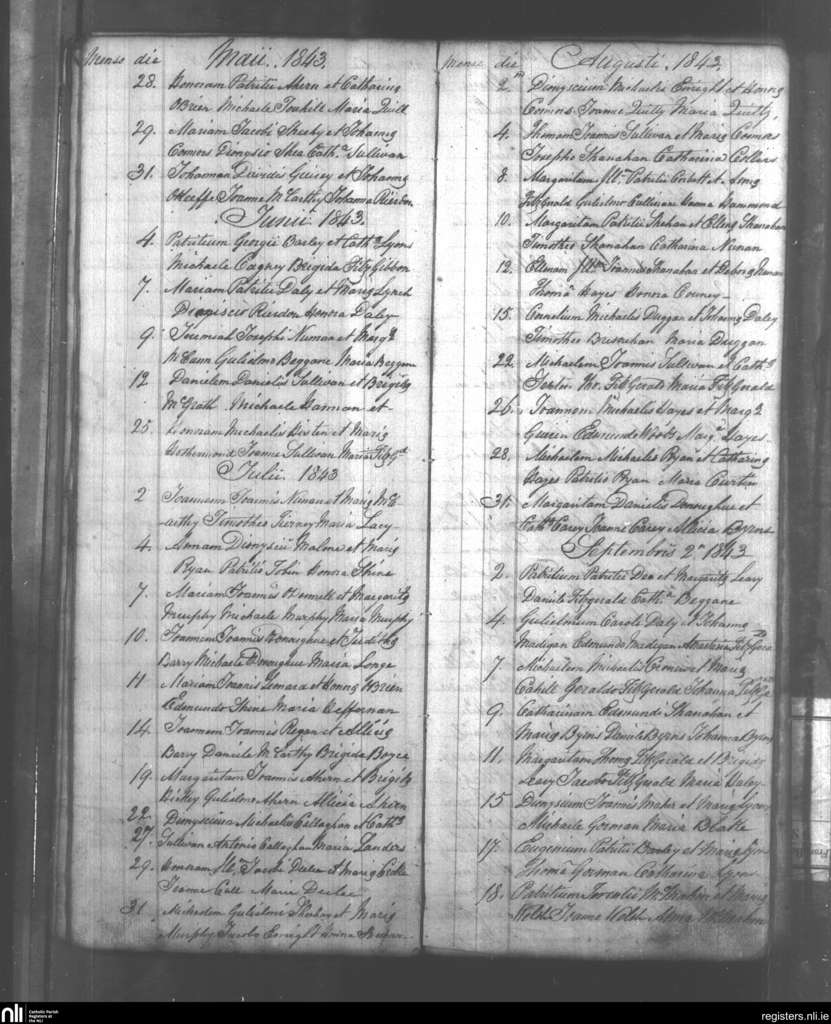 Mense die Maii. 1843.
28. Honoram Patritii Ahern et Catharinæ
Brien Michaele Toohill Maria Quill
29. Mariam Jacobi Sheehy et Johannæ
Connors Dionysio Shea Cath.a Sullivan
31. Johannam Davidis Guiney et Johannæ
OKeeffe Joanne McCarthy Johanna Riordon
Junii. 1843.
4. Patritium Georgii Barley et Cath.æ Lyons
Michaele Cagney Brigida FitzGibbon
7. Mariam Patritii Daly et Mariæ Lynch
Dionisio Riordon Honora Daley
9. Josephi Nunan et Marg.æ
McCann Gulielmo Beggane Maria Beggane
12 Danielem Danielis Sullivan et Brigidæ
McGrath Michaele Hannon et
25. Honoram Michaelis et Mariæ
Joanne Sullivan Maria
Julii. 1843
2 Joannem Joannis Nunan et Mariæ Mc
Carthy Timotheo Tierney Maria Lacy
4. Annam Dionysii Malone et Mariæ
Ryan Patritio Tobin Honora Shine
7. Mariam Joannis et Margaritæ
Murphy Michaele Murphy Maria Murphy
10. Joannem Joannis Donaghue et Judithæ
Barry Michaele Donaghue Maria Longe
11 Mariam Joannis Lenard et Honoræ OBrien
Edmundo Shine Maria Heffernan
14. Joannem Joannis Regan et Alliciæ
Barry Daniele McCarthy Brigida Boyce
19. Margaritam Joannis Ahern et Brigidæ
Gulielmo Ahern Allicia Ahern
22. Dionysium Michaelis Callaghan et Cath.æ
27. Sullivan Antonio Callaghan Maria Landers
29. Jacobi et Mariæ
Joanne Call Maria
31 Michaelem Gulielmi et Mariæ
Murphy Jacobo Enright
Mense die Augusti. 1843.
2. Dionysium Michaelis Enright et Honoræ
Connors Joanne Quilty Maria Quilty,
4. Thomam Joannis Sullivan et Mariæ Connors
Josepho Shanahan Catharina Collins
8. Margaritam Patritii Corbett et
FitzGerald Gulielmo Cullinan Hammond
10. Margaritam Patritii Shehan et Ellenæ Shanahan
Timotheo Shanahan Catharina Nunan
12. Ellenam Joannis Shanahan et Deboræ Nunan
Thoma Hayes Honora
15. Cornelium Michaelis Duggan et Johannæ Daley
Timotheo Brisnahan Maria Duggan
22. Michaelem Joannis Sullivan et Cath.æ
FitzGerald Maria FitzGerald
26. Joannem Michaelis Hayes et Marg.æ
Guerin Edmundo Woods Marg.a Hayes
28. Michaelem Michaelis Ryan et Catharinæ
Hayes Patritio Ryan Maria Curtin
31. Margaritam Danielis Donoughue et
Cath.æ Carey Joanne Carey Allicia Byrns
Septembris 2a 1843
2. Patritium Patritii Dea et Margaritæ Leary
Daniele Fitzgerald Cath.a Beggane
4. Gulielmum Caroli Daly et Johannæ
Madigan Edmundo Madigan Anastasia FitzGerald
7. Michaelem Michaelis et Mariæ
Cahill Geraldo FitzGerald Johanna
9. Catharinam Edmundi Shanahan et
Mariæ Byrns Daniele Byrns Johanna Byrns
11. Margaritam Thomæ FitzGerald et Brigidæ
Leary Jacobo FitzGerald Maria Daley
15 Dionysium Joannis Maher et Mariæ Lyons
Michaele Gorman Maria Blake
17. Eugenium Patritii Barley et Mariæ Lyons
Thoma Gorman Catharina Lyons
18. Patritium McMahon et Mariæ
Welsh Joanne Welsh Anna McMahon
nli
Catholic Parish
Registers at
the NLI
registers.nli.ie